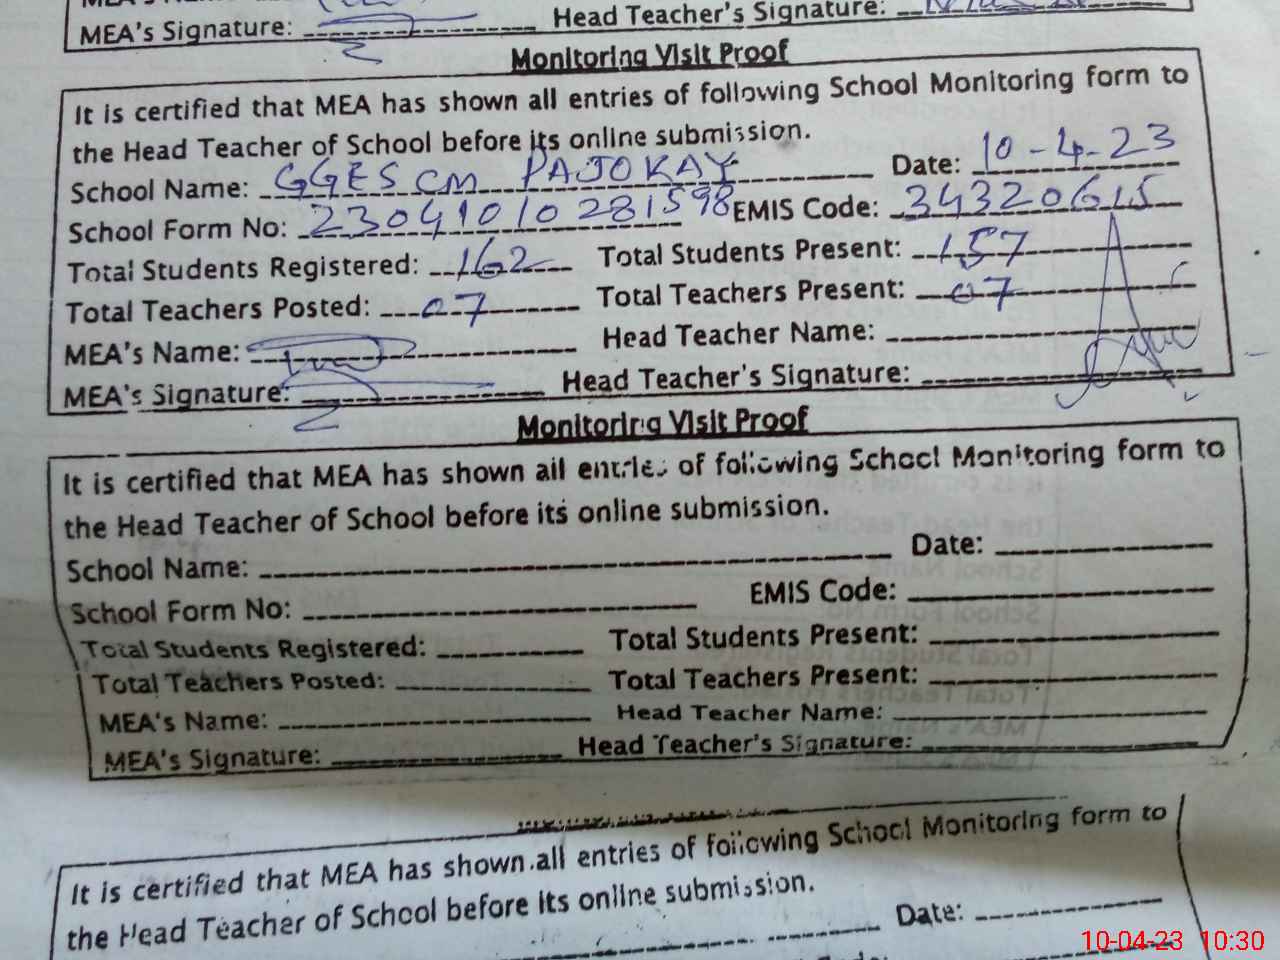 MEA's Signature: Head Teacher's Signature:
Monitoring Visit Proof
It is certified that MEA has shown all entries of following School Monitoring form to
the Head Teacher of School before its online submission.
School Name: GGES CM PAJOKAY Date: 10-4-23
School Form No: 23041010281598 EMIS Code: 34320615
Total Students Registered: 162 Total Students Present: 157
Total Teachers Posted: 07 Total Teachers Present: 07
MEA's Name: Head Teacher Name:
MEA's Signature: Head Teacher's Signature:
Monitoring Visit Proof
It is certified that MEA has shown all entries of following School Monitoring form to
the Head Teacher of School before its online submission.
School Name: Date:
School Form No: EMIS Code:
Total Students Registered: Total Students Present:
Total Teachers Posted: Total Teachers Present:
MEA's Name: Head Teacher Name:
MEA's Signature: Head Teacher's Signature:
It is certified that MEA has shown all entries of following School Monitoring form to
the Head Teacher of School before its online submission.
Date:
10-04-23 10:30